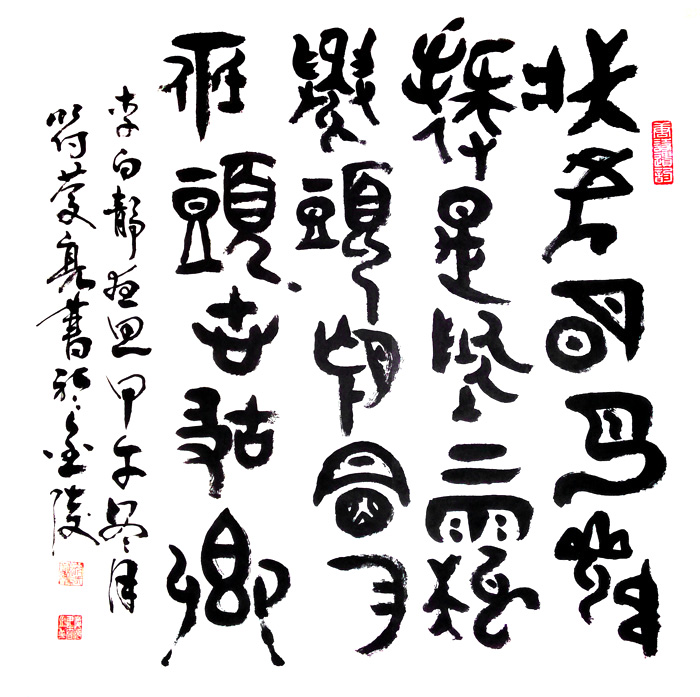 牀前明月光
疑是地上霜
舉頭望明月
低頭思故鄉
李白靜夜思甲午冬月
符亮書於金陵